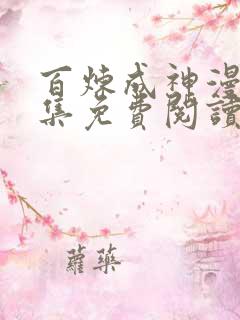 百煉成神漫
集免費閱讀
蘿藥